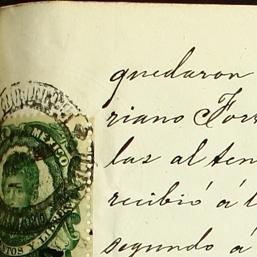 quedaron
riano Forr
las al ten
recibió á l
segundo á
MEXICO